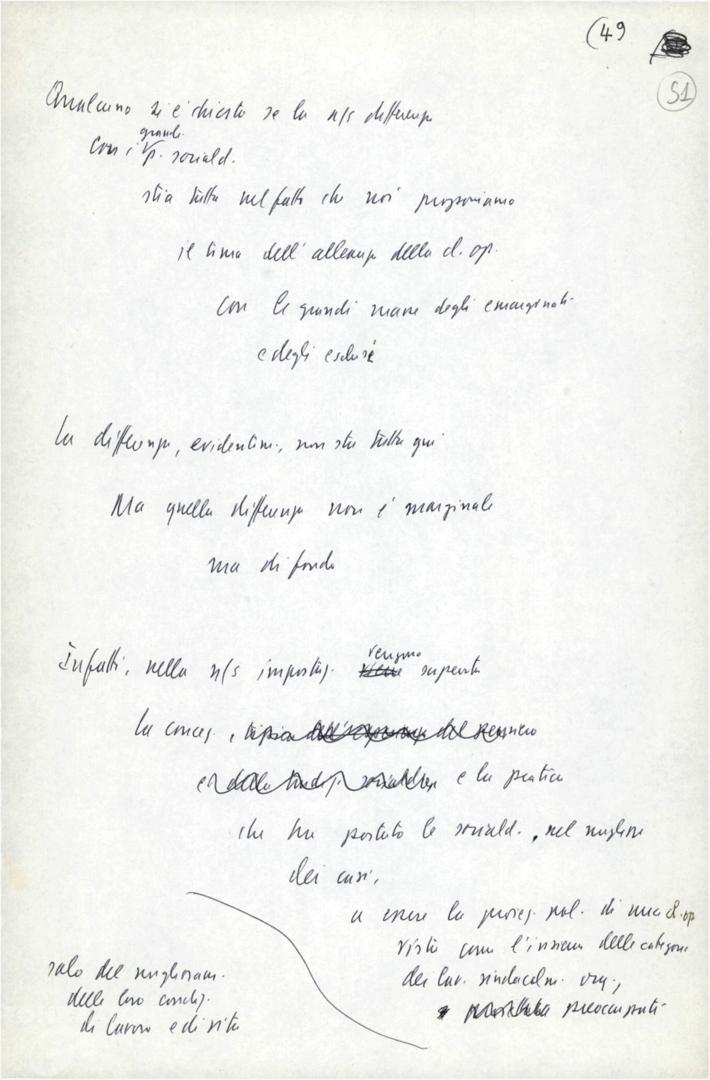 (49
51
Qualcuno si è chiesto se la n/s differenza
grandi
con i p. sociald.
stia tutta nel fatto che noi proponiamo
il tema dell'alleanza della cl. op.
con le grandi masse degli emarginati
e degli esclusi
La differenza, evidentem., non sta tutta qui
Ma quella differenza non è marginale
ma di fondo
Infatti, nella n/s impostaz.
vengono
superata
la concez.,
e la pratica
che ha portato le sociald., nel migliore
dei casi,
a essere la proiez. pol. di una cl. op
vista come l'insieme delle categorie
dei lav. sindacalm. org.,
preoccupati
solo del miglioram.
delle loro condiz.
di lavoro e di vita